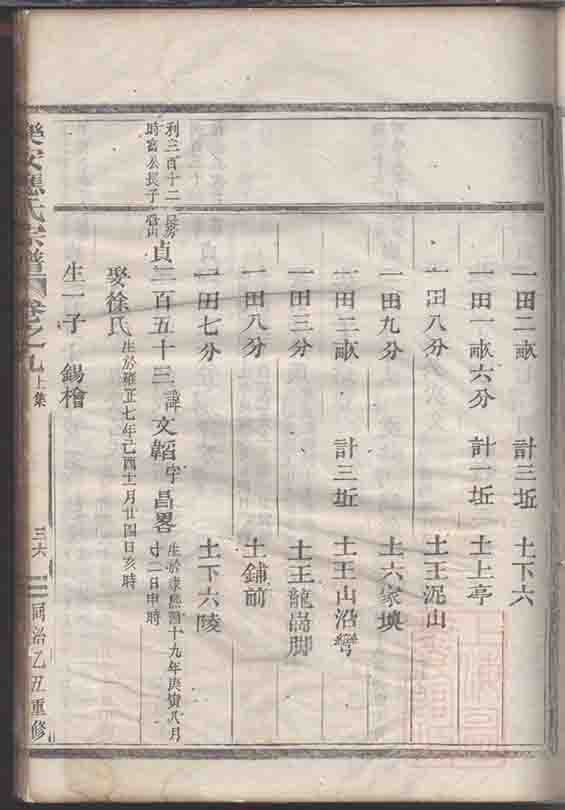 一田二畝 計三坵 土下六
一田一畝六分 計一坵 土上亭
一田八分 土王泥山
一田九分 土六家塽
一田二畝 計三坵 土王山沿彎
一田三分 土王龍崗脚
一田八分 土鋪前
一田七分 土下六陵
利三百十二
時富公長子
貞三百五十三 諱文韜字昌畧 生於康熙四十九年庚寅八月
廿二日申時
娶徐氏 生於雍正七年己酉十一月廿四日亥時
生一子 錫檜
氏宗譜 卷之九 上集 三六 同治乙丑重修